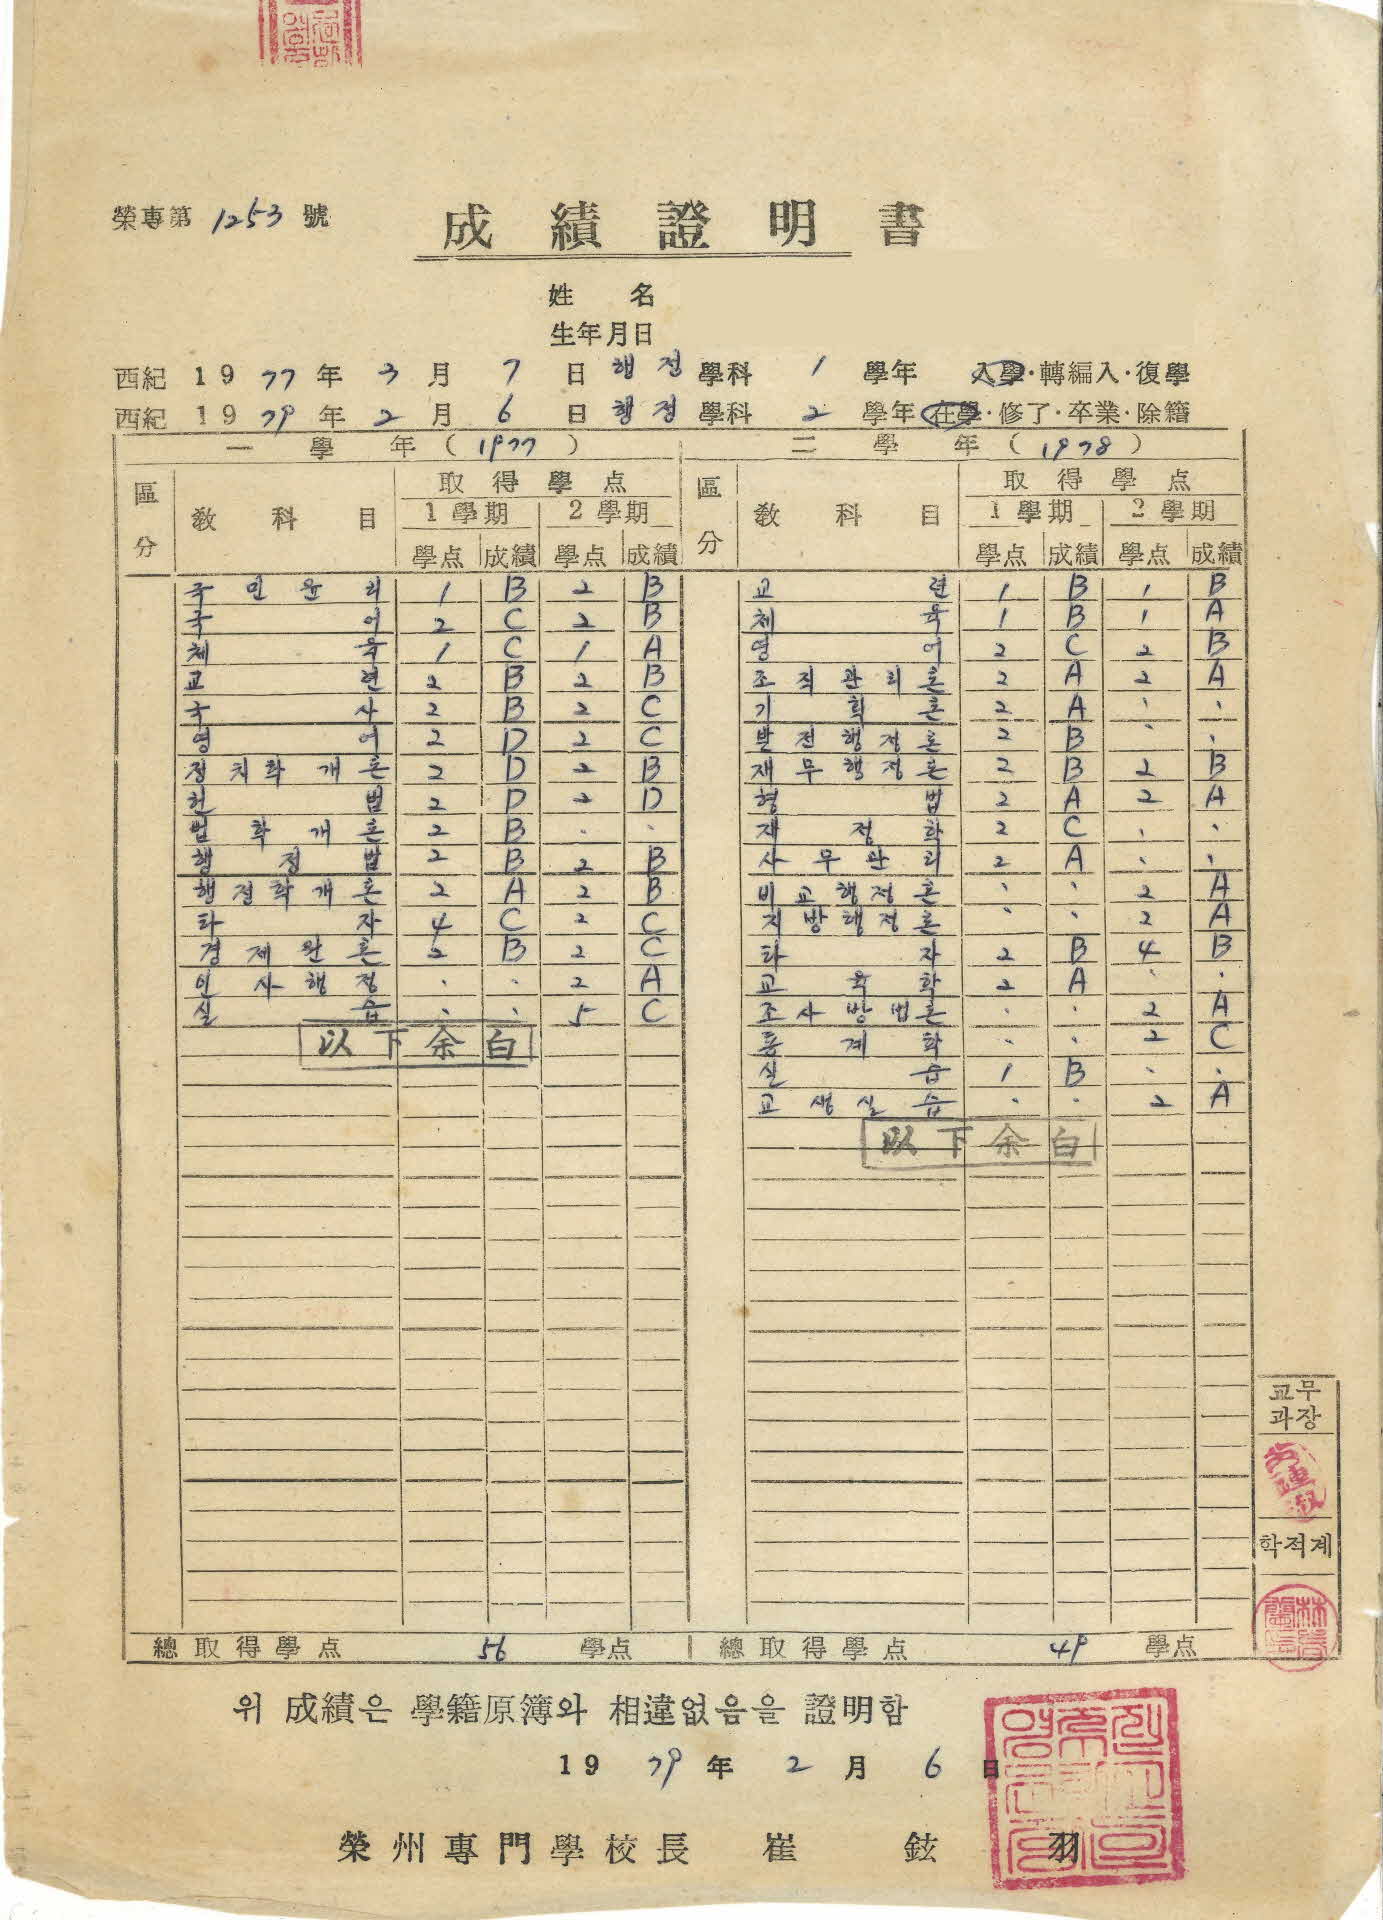 榮專第 1253 號
成績證明書
姓 名
生年月日
西紀 1977 年 3 月 7 日 행정 學科 1 學年 入學·轉編入·復學
西紀 1979 年 2 月 6 日 행정 學科 2 學年 在學·修了·卒業·除籍
一 學 年 ( 1977 ) 二 學 年 ( 1978 )
區分 敎科目 取得學点 區分 敎科目 取得學点
1學期 2學期 1學期 2學期
學点 成績 學点 成績 學点 成績 學点 成績
국민윤리 1 B 2 B 교련 1 B 1 B
국어 2 C 2 B 체육 1 B 1 A
체육 1 C 1 A 영어 2 C 2 B
교련 2 B 2 B 조직관리론 2 A 2 A
국사 2 B 2 C 기획론 2 A · ·
영어 2 D 2 C 발전행정론 2 B · ·
정치학개론 2 D 2 B 재무행정론 2 B 2 B
헌법 2 D 2 D 형법 2 A 2 A
법학개론 2 B · · 재정학 2 C · ·
행정법 2 B 2 B 사무관리 2 A · ·
행정학개론 2 A 2 B 비교행정론 · · 2 A
타자 4 C 2 C 지방행정론 · · 2 A
경제원론 2 B 2 C 타자 2 B 4 B
인사행정 · · 2 A 교육학 2 A · ·
실습 · · 5 C 조사방법론 · · 2 A
以下余白 통계학 · · 2 C
실습 1 B · ·
교생실습 · · 2 A
以下余白
교무
과장
학적계
總取得學点 56 學点 總取得學点 49 學点
위 成績은 學籍原簿와 相違없음을 證明함
1979 年 2 月 6 日
榮州專門學校長 崔鉉羽